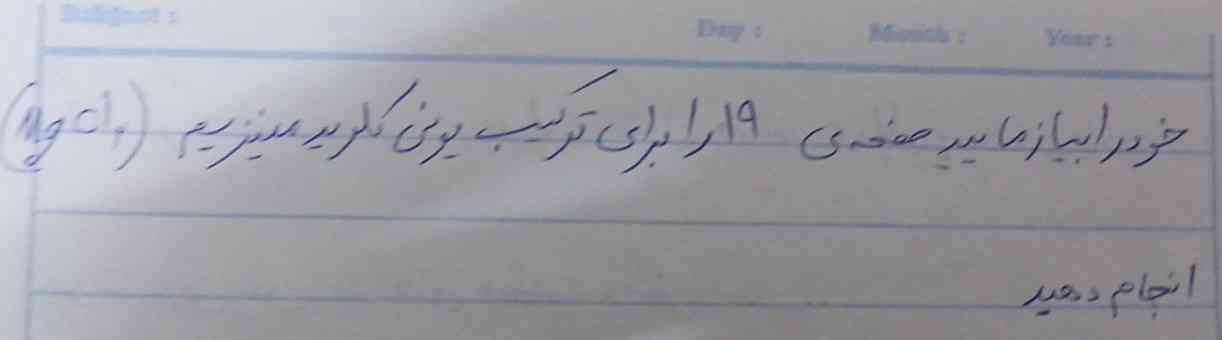 Subject :
Day :   Month :   Year :
خود را بیازمایید صفحه ی ۱۹ را برای ترکیب یونی کلرید منیزیم (MgCl₂)
انجام دهید